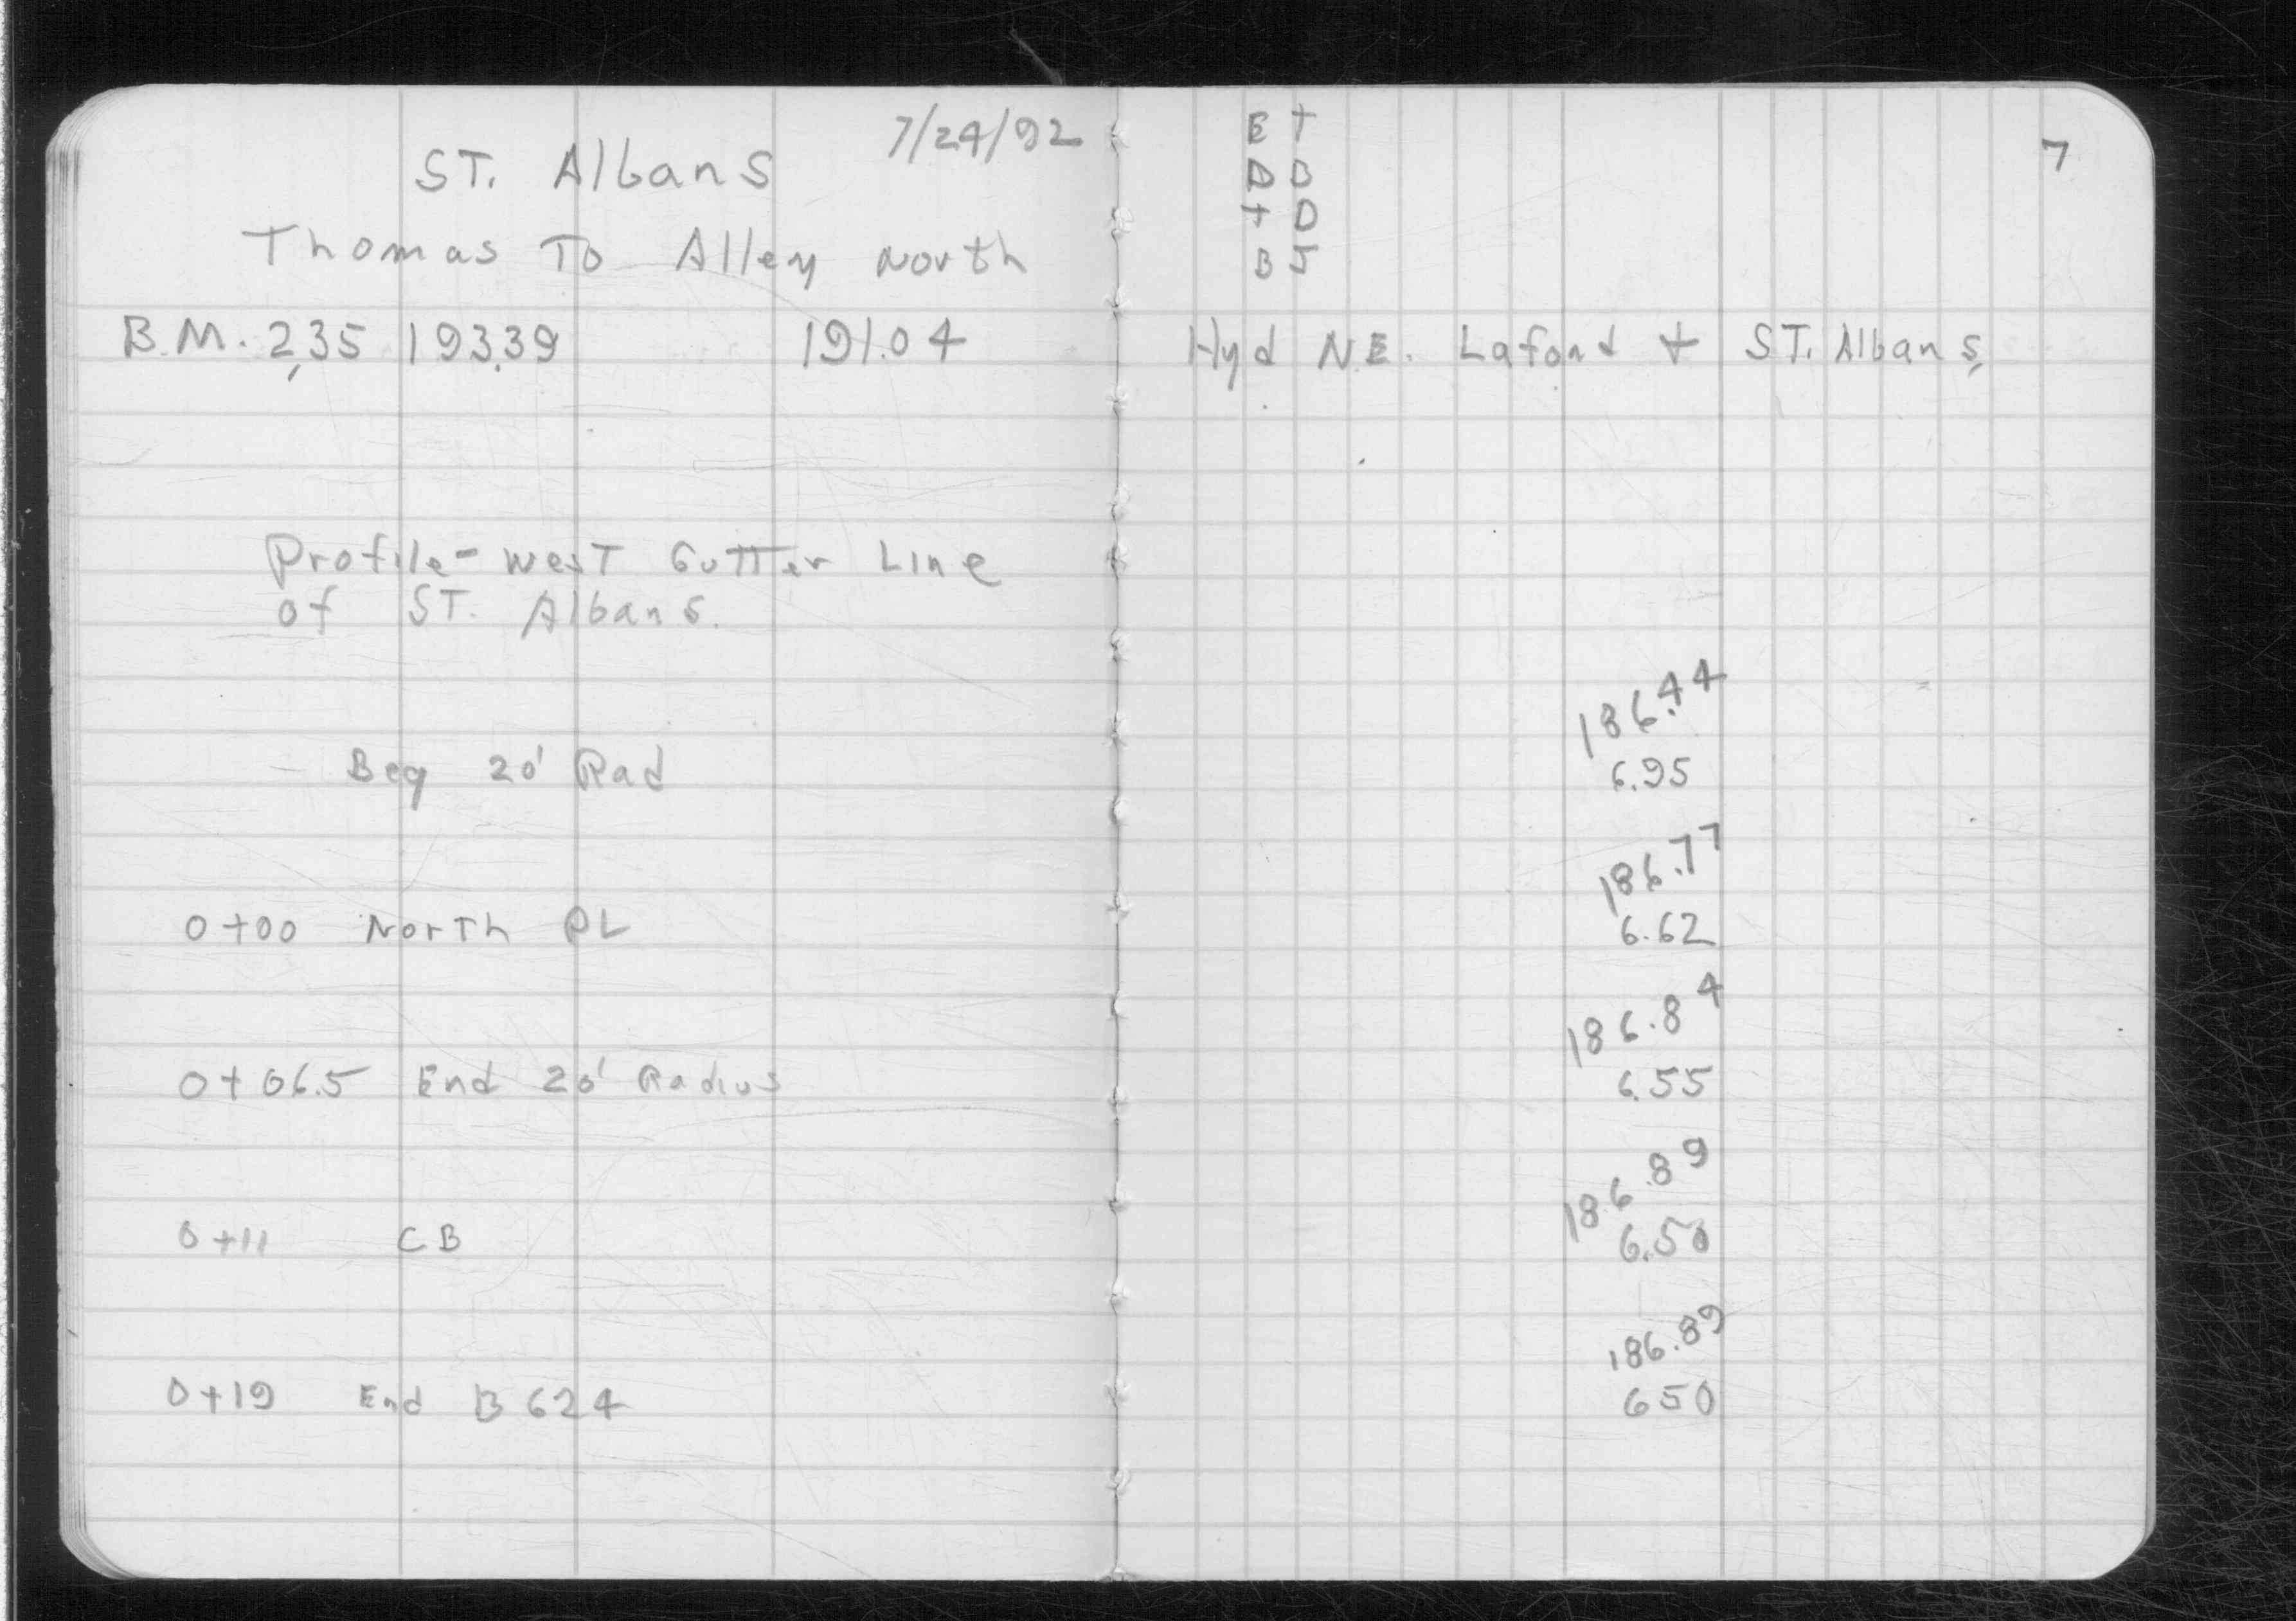 7/24/92
ST. Albans
Thomas To Alley North
B.M. 2.35 193.39 191.04
Profile - West Gutter Line
of ST. Albans.
Beg 20' Rad
0+00 North PL
0+06.5 End 20' Radius
0+11 CB
0+19 End B624
7
E T
D B
+ D
B J
Hyd N.E. Lafond + ST. Albans
186.44
6.95
186.77
6.62
186.84
6.55
186.89
6.50
186.89
650